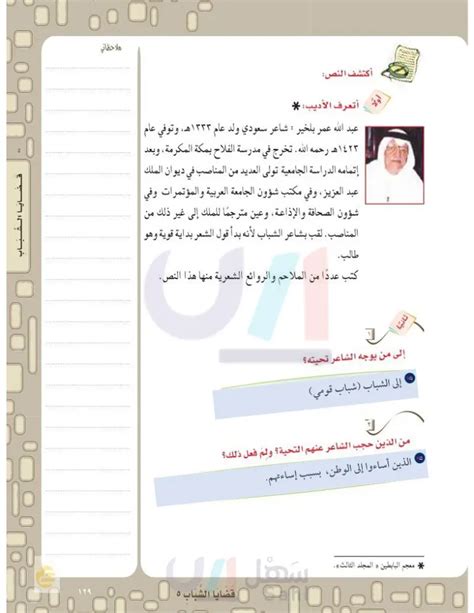 ملاحظاتي
أكتشف النص:
أولًا
أتعرف الأديب: *
عبد الله عمر بلخير: شاعر سعودي ولد عام ١٣٣٣هـ، وتوفي عام
١٤٢٣هـ رحمه الله. تخرج في مدرسة الفلاح بمكة المكرمة، وبعد
إتمامه الدراسة الجامعية تولى العديد من المناصب في ديوان الملك
عبد العزيز، وفي مكتب شؤون الجامعة العربية والمؤتمرات وفي
شؤون الصحافة والإذاعة، وعين مترجمًا للملك إلى غير ذلك من
المناصب. لقب بشاعر الشباب لأنه بدأ قول الشعر بداية قوية وهو
طالب.
كتب عددًا من الملاحم والروائع الشعرية منها هذا النص.
ثانيًا
إلى من يوجه الشاعر تحيته؟
إلى الشباب (شباب قومي)
من الذين حجب الشاعر عنهم التحية؟ ولم فعل ذلك؟
الذين أساءوا إلى الوطن، بسبب إساءتهم.
* معجم البابطين « المجلد الثالث ».
قضايا الشباب
قضايا الشباب ٥
١٢٩
سهل
Sahl